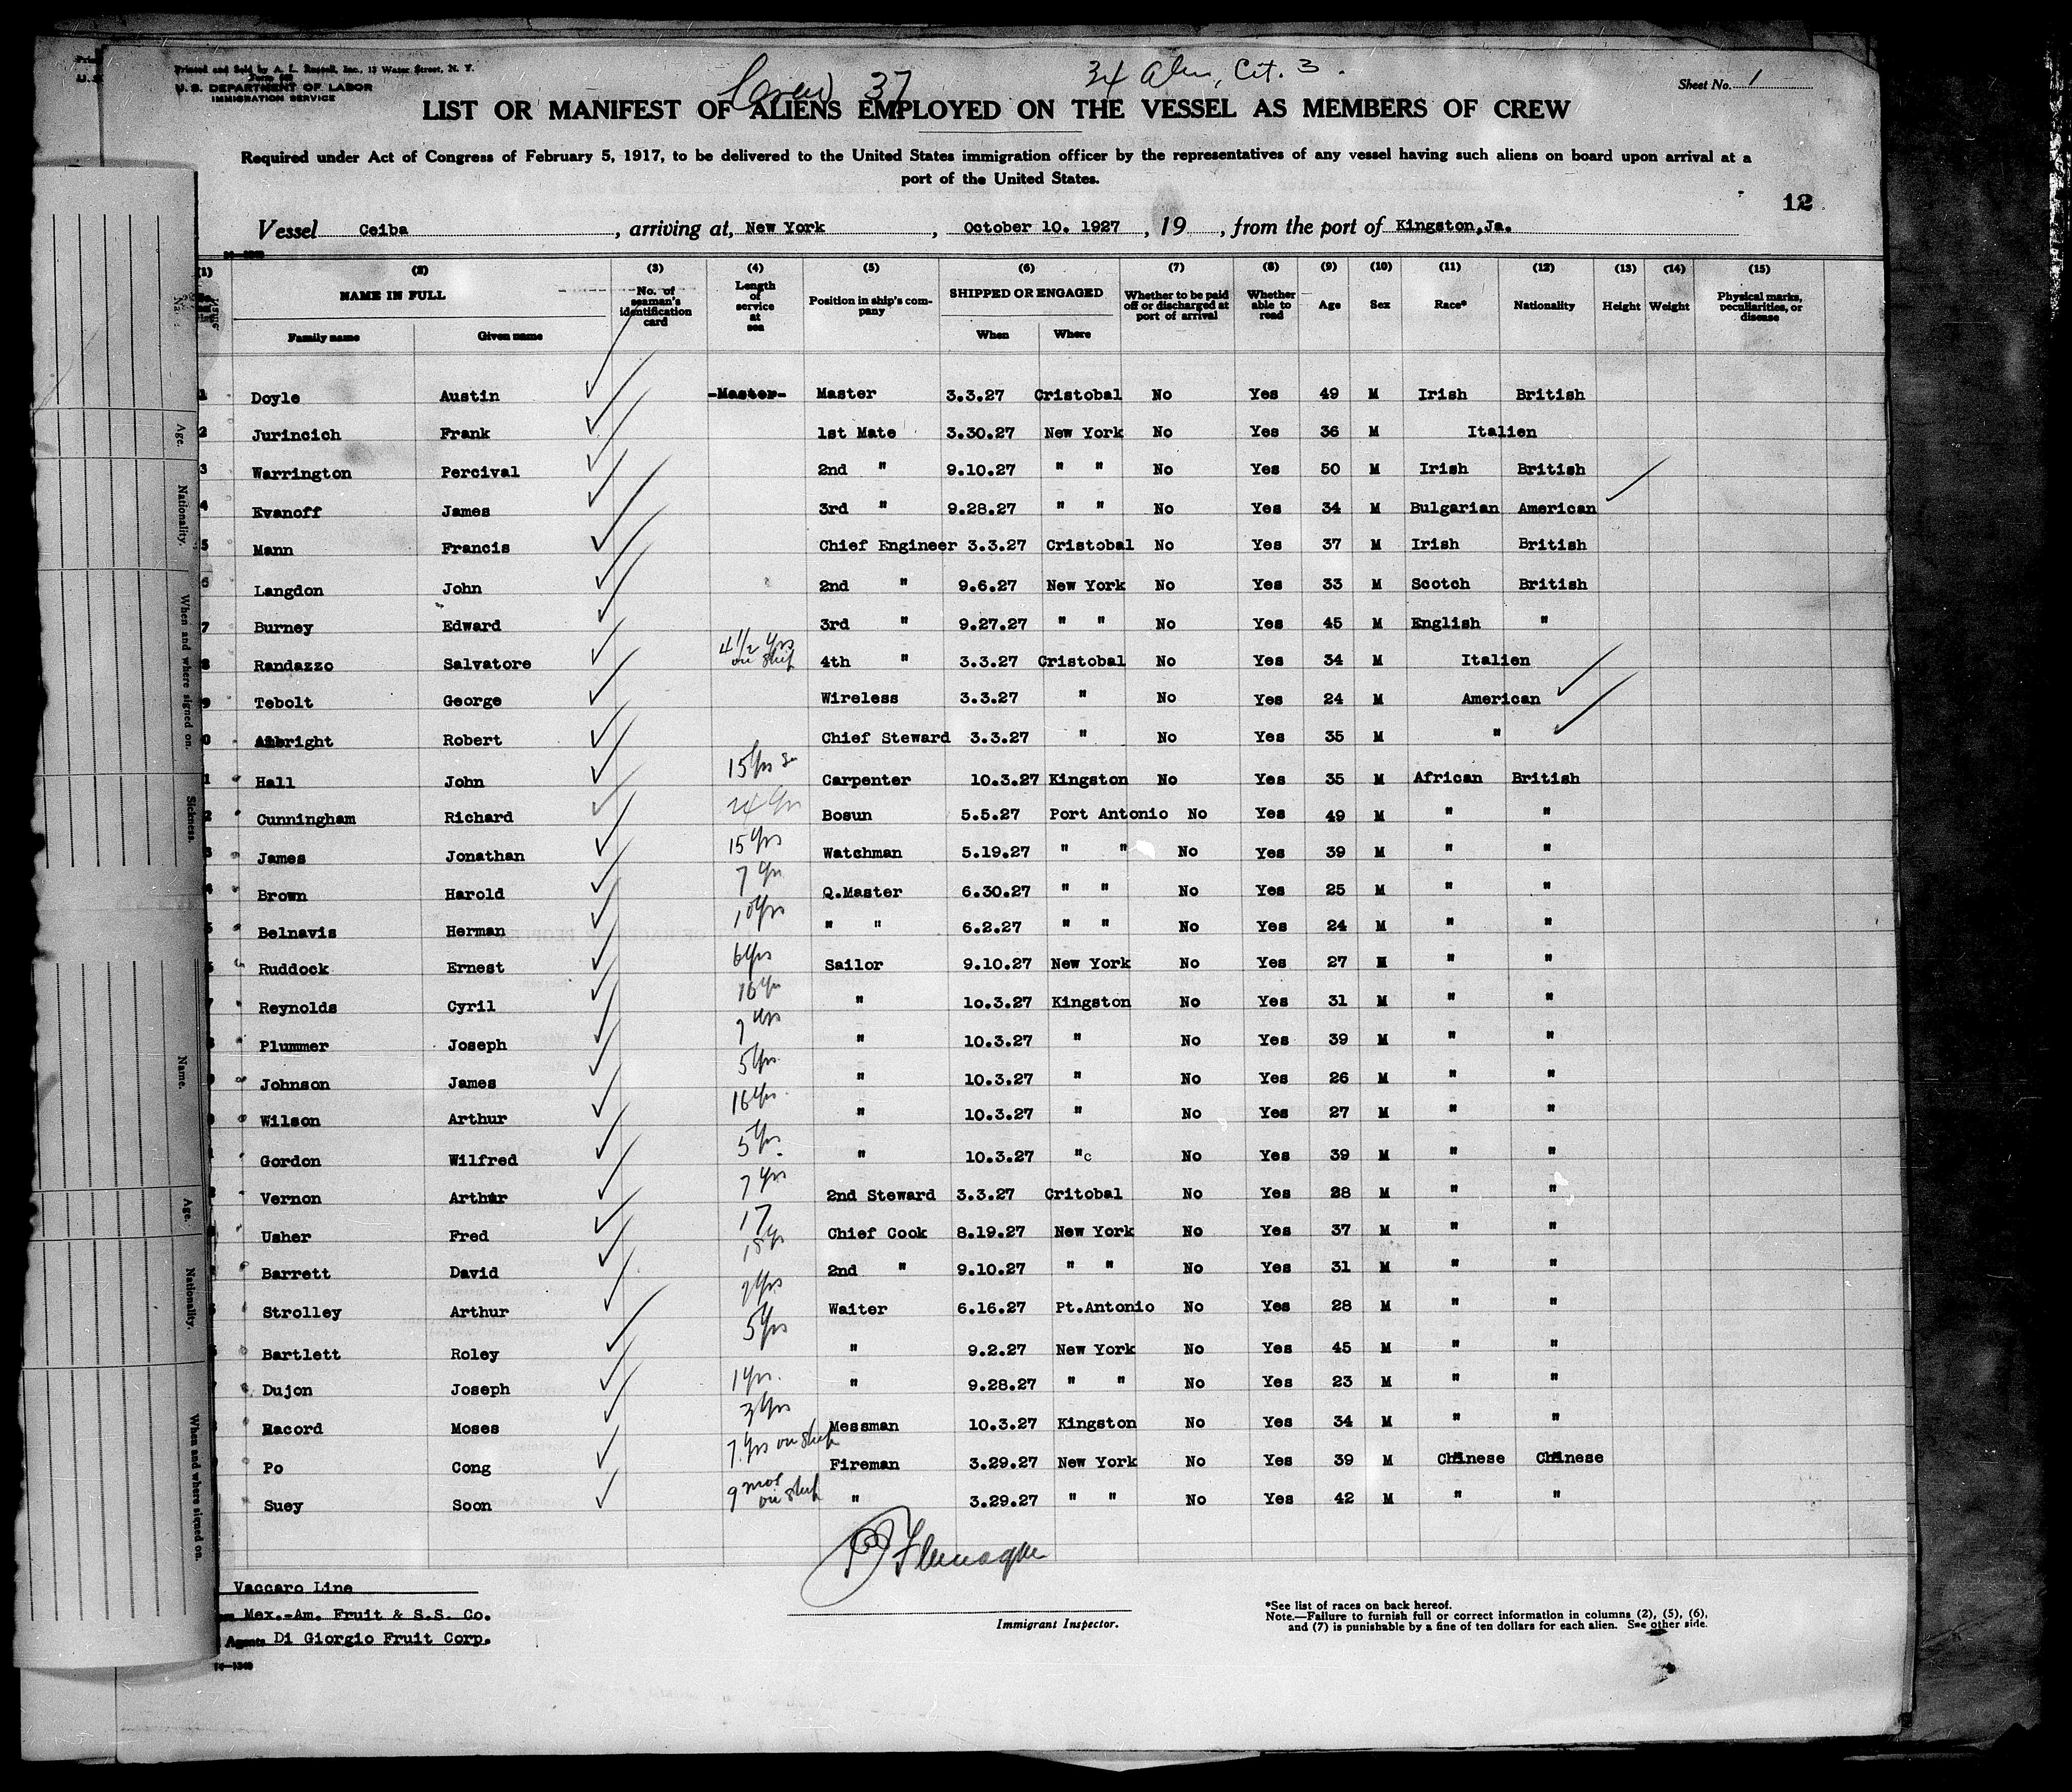 Printed and Sold by A. L. Russell, Inc., 13 Water Street, N. Y.
U. S. DEPARTMENT OF LABOR
IMMIGRATION SERVICE
Crew 37
34 Alien, Cit. 3.
Sheet No. 1
LIST OR MANIFEST OF ALIENS EMPLOYED ON THE VESSEL AS MEMBERS OF CREW
Required under Act of Congress of February 5, 1917, to be delivered to the United States immigration officer by the representatives of any vessel having such aliens on board upon arrival at a
port of the United States.
12
Vessel Ceiba, arriving at, New York, October 10. 1927, 19, from the port of Kingston,Ja.
(1) (2) (3) (4) (5) (6) (7) (8) (9) (10) (11) (12) (13) (14) (15)
NAME IN FULL No. of seaman's identification card Length of service at sea Position in ship's company SHIPPED OR ENGAGED Whether to be paid off or discharged at port of arrival Whether able to read Age Sex Race* Nationality Height Weight Physical marks, peculiarities, or disease
Family name Given name When Where
1 Doyle Austin -Master- Master 3.3.27 Cristobal No Yes 49 M Irish British
2 Jurincich Frank 1st Mate 3.30.27 New York No Yes 36 M Italien
3 Warrington Percival 2nd " 9.10.27 " " No Yes 50 M Irish British
4 Evanoff James 3rd " 9.28.27 " " No Yes 34 M Bulgarian American
5 Mann Francis Chief Engineer 3.3.27 Cristobal No Yes 37 M Irish British
6 Langdon John 2nd " 9.6.27 New York No Yes 33 M Scotch British
7 Burney Edward 3rd " 9.27.27 " " No Yes 45 M English "
8 Randazzo Salvatore 4 1/2 yrs on ship 4th " 3.3.27 Cristobal No Yes 34 M Italien
9 Tebolt George Wireless 3.3.27 " No Yes 24 M American
0 Albright Robert Chief Steward 3.3.27 " No Yes 35 M "
1 Hall John 15 yrs Carpenter 10.3.27 Kingston No Yes 35 M African British
2 Cunningham Richard 24 yrs Bosun 5.5.27 Port Antonio No Yes 49 M " "
3 James Jonathan 15 yrs Watchman 5.19.27 " " No Yes 39 M " "
4 Brown Harold 7 yrs Q.Master 6.30.27 " " No Yes 25 M " "
5 Belnavis Herman 10 yrs " " 6.2.27 " " No Yes 24 M " "
Ruddock Ernest 6 yrs Sailor 9.10.27 New York No Yes 27 M " "
7 Reynolds Cyril 16 yrs " 10.3.27 Kingston No Yes 31 M " "
Plummer Joseph 7 yrs " 10.3.27 " No Yes 39 M " "
Johnson James 5 yrs " 10.3.27 " No Yes 26 M " "
Wilson Arthur 16 yrs. " 10.3.27 " No Yes 27 M " "
Gordon Wilfred 5 yrs " 10.3.27 "c No Yes 39 M " "
Vernon Arthur 7 yrs 2nd Steward 3.3.27 Critobal No Yes 28 M " "
Usher Fred 17 Chief Cook 8.19.27 New York No Yes 37 M " "
Barrett David 15 yrs 2nd " 9.10.27 " " No Yes 31 M " "
Strolley Arthur yrs Waiter 6.16.27 Pt.Antonio No Yes 28 M " "
Bartlett Roley 5 yrs " 9.2.27 New York No Yes 45 M " "
Dujon Joseph 1 yrs. " 9.28.27 " " No Yes 23 M " "
Racord Moses 3 yrs Messman 10.3.27 Kingston No Yes 34 M " "
Po Cong 7 yrs on ship Fireman 3.29.27 New York No Yes 39 M Chinese Chinese
Suey Soon 9 mos on ship " 3.29.27 " " No Yes 42 M " "
Vaccaro Line
Mex.-Am. Fruit & S.S. Co.
Agents Di Giorgio Fruit Corp.
14—1240
Immigrant Inspector.
*See list of races on back hereof.
Note.—Failure to furnish full or correct information in columns (2), (5), (6),
and (7) is punishable by a fine of ten dollars for each alien. See other side.
Age.
Nationality.
When and where signed on.
Sickness.
Name.
Age.
Nationality.
When and where signed on.